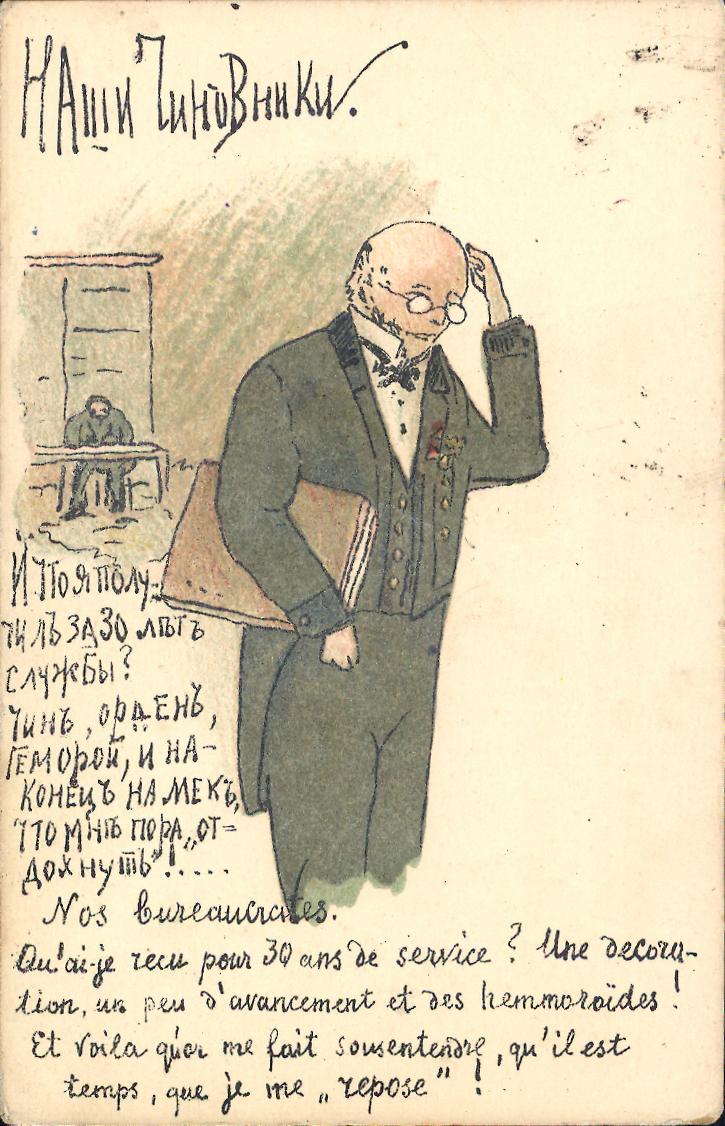 Наши Чиновники.
И что я полу-
чилъ за 30 лѣтъ
службы?
Чинъ, орденъ,
геморой, и на-
конецъ намекъ,
что мнѣ пора „от=
дохнуть"!.....
Nos bureaucrates.
Qu'ai-je recu pour 30 ans de service? Une decora-
tion, un peu d'avancement et des hemmoroïdes!
Et voila qu'on me fait sousentendre, qu'il est
temps, que je me „repose"!